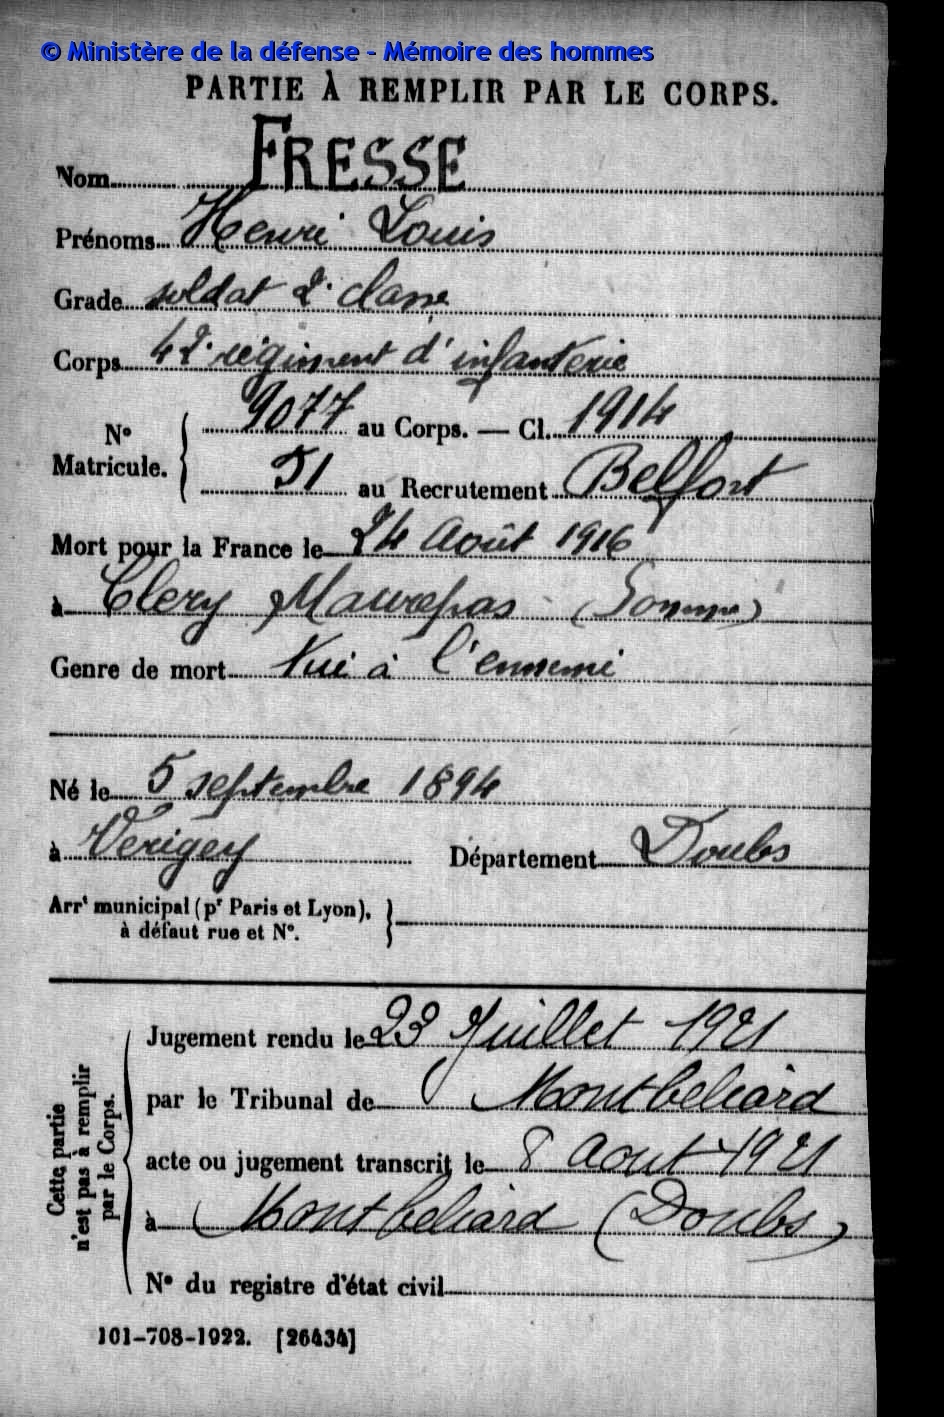 © Ministère de la défense - Mémoire des hommes
PARTIE À REMPLIR PAR LE CORPS.
Nom FRESSE
Prénoms Henri Louis
Grade soldat 2e classe
Corps 42e régiment d'infanterie
No Matricule. { 9077 au Corps. — Cl. 1914
51 au Recrutement Belfort
Mort pour la France le 24 Août 1916
à Clery Maurepas (Somme)
Genre de mort Tué à l'ennemi
Né le 5 septembre 1894
à Verigey Département Doubs
Arrt municipal (pr Paris et Lyon), }
à défaut rue et No.
Cette partie
n'est pas à remplir
par le Corps.
Jugement rendu le 23 Juillet 1921
par le Tribunal de Montbeliard
acte ou jugement transcrit le 8 Aout 1921
à Montbeliard (Doubs)
No du registre d'état civil
101-708-1922. [26434]